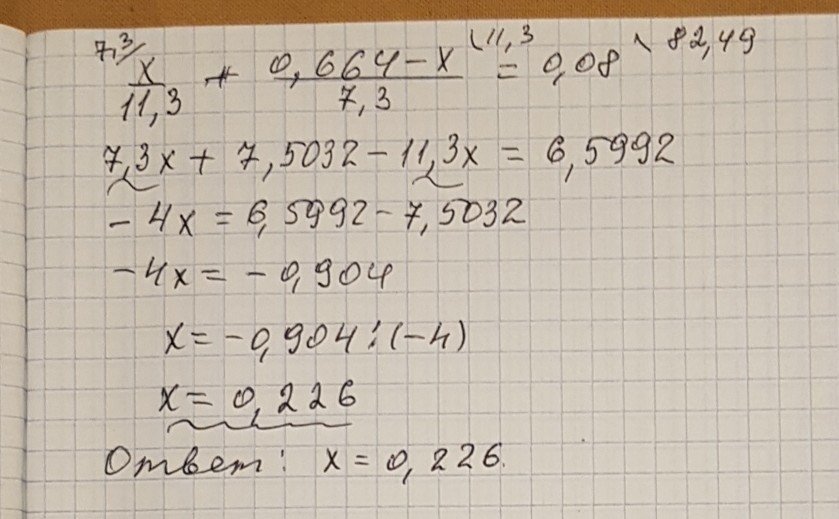 7,3/ x/11,3 + (0,664-x)/7,3 \11,3 = 0,08 \ 82,49
7,3x + 7,5032 - 11,3x = 6,5992
- 4x = 6,5992 - 7,5032
- 4x = - 0,904
x = - 0,904 : (-4)
x = 0,226
Ответ: x = 0,226.